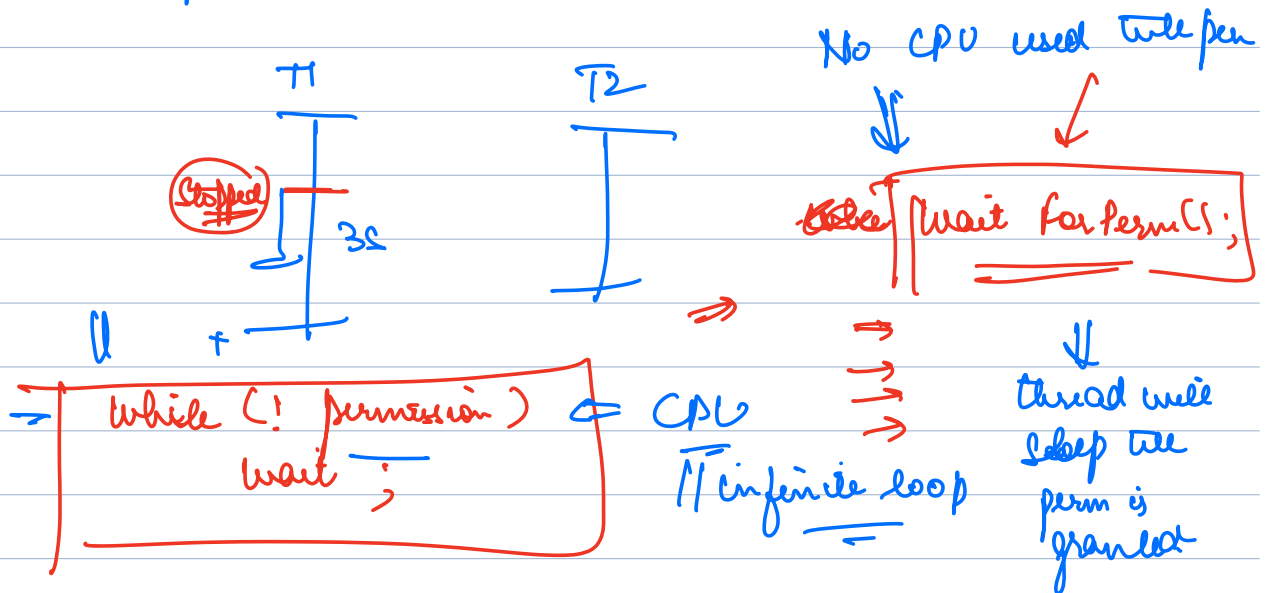 No CPU used till perm
T1
T2
Stopped
3s
Wait for Perm();
while (! permission)
wait ;
CPU
// infinite loop
thread will
sleep till
perm is
granted